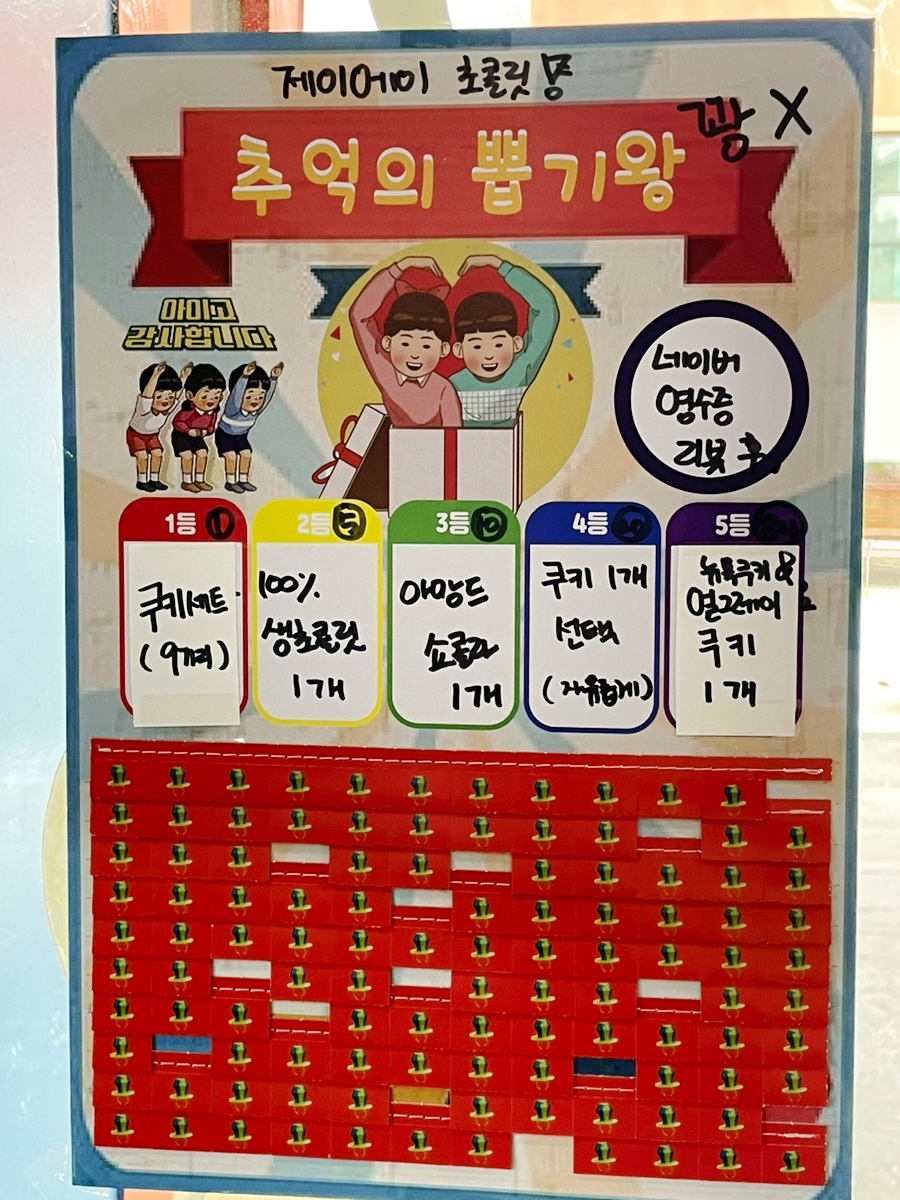 제이에이 초콜릿
꽝 X
추억의 뽑기왕
아이고
감사합니다
네이버
영수증
리뷰 후
1등 1
쿠키세트
(9개)
2등 5
100%
생초콜릿
1개
3등 10
아망드
쇼콜라
1개
4등 20
쿠키 1개
선택
(자유롭게)
5등
뉴욕쿠키 &
얼그레이
쿠키
1개